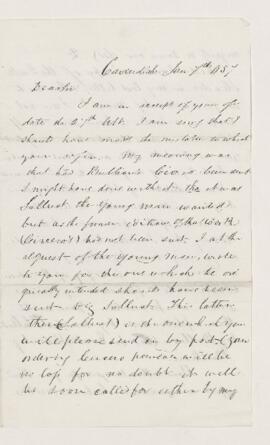 Cavendish Jan 7th 1857
Dear Sir
I am in receipt of yours of
date the 27th Ult. I am sorry that I
should have made the mistake to which
you refer. My meaning was
that had Bullions Cicero been sent
I might have done with it. It was
Sallust the young man wanted
but as the former edition of that work
(Cicero's) had not been sent. I at the
request of the young man, wrote
to you for the one which he ori
ginally intended should have been
sent viz Sallust. This latter
then (Sallust) is the one which you
will please send on by post. Your
ordering Cicero however will be
no loss for no doubt it will
be soon called for either by my